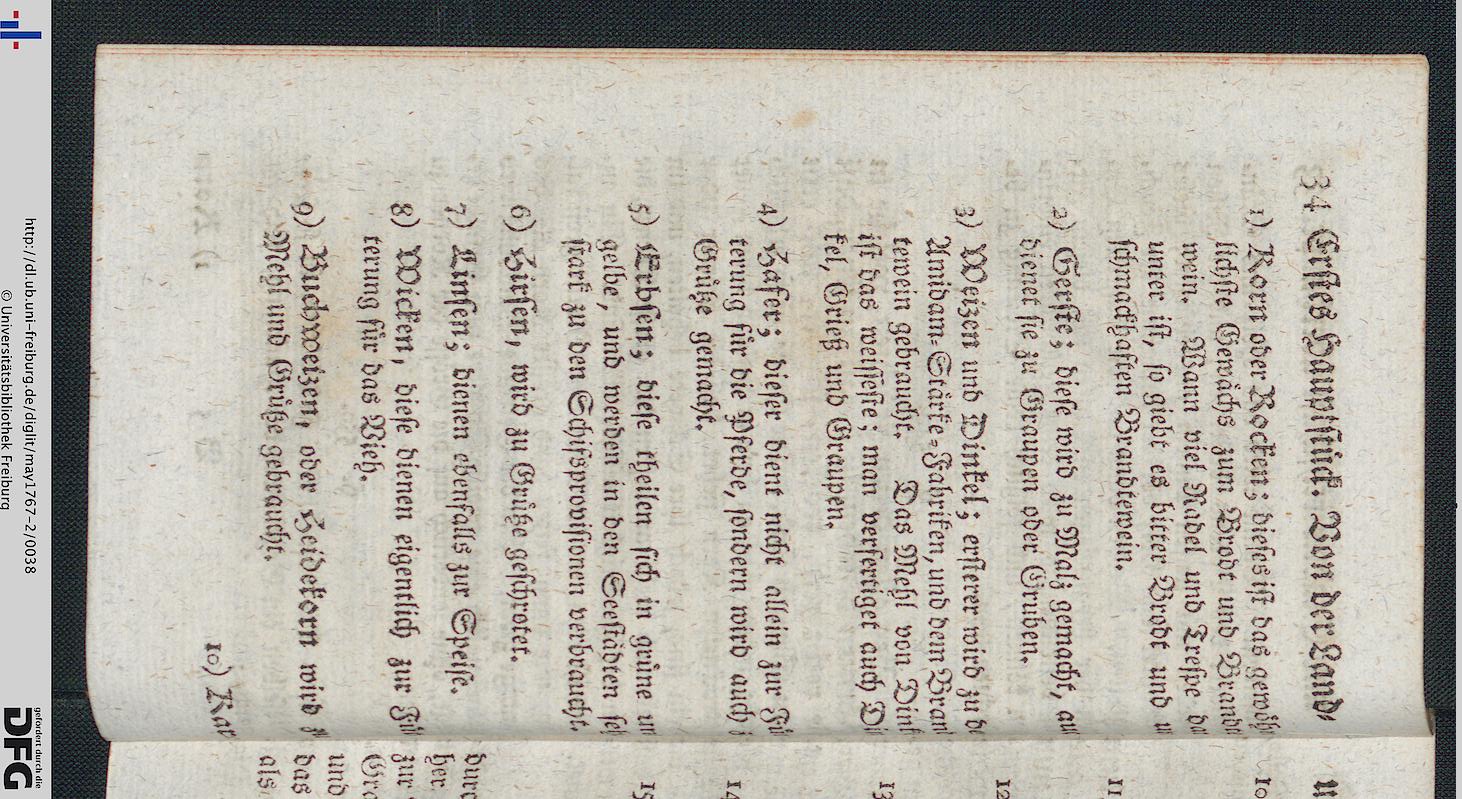 34 Erſtes Hauptſtück. Von der Land-
1) Korn oder Rocken; dieſes iſt das gewöh
lichſte Gewächs zum Brodt und Brandt
wein. Wann viel Radel und Treſpe da
unter iſt, ſo giebt es bitter Brodt und u
ſchmackhaften Brandtewein.
2) Gerſte; dieſe wird zu Malz gemacht, au
dienet ſie zu Graupen oder Gruben.
3) Weizen und Dinkel; erſterer wird zu d
Amidam-Stärke-Fabriken, und dem Bran
tewein gebraucht. Das Mehl von Dink
iſt das weiſſeſte; man verfertiget auch D
kel, Grieß und Graupen.
4) Hafer; dieſer dient nicht allein zur Fü
terung für die Pferde, ſondern wird auch z
Grütze gemacht.
5) Erbſen; dieſe theilen ſich in grüne un
gelbe, und werden in den Seeſtädten ſeh
ſtark zu den Schifsproviſionen verbraucht.
6) Hirſen, wird zu Grütze geſchrotet.
7) Linſen; dienen ebenfalls zur Speiſe.
8) Wicken, dieſe dienen eigentlich zur Füt
terung für das Vieh.
9) Buchweizen, oder Heidekorn wird z
Mehl und Grütze gebraucht.
10) Kar
10
11
12
13
14
15
durc
her
zur
Gra
und
das
als
http://dl.ub.uni-freiburg.de/diglit/may1767-2/0038
© Universitätsbibliothek Freiburg
gefördert durch die
DFG